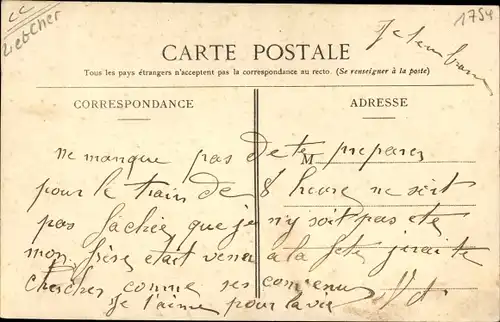 CC
Liebcher
1754
Je t'embrasse
CARTE POSTALE
Tous les pays étrangers n'acceptent pas la correspondance au recto. (Se renseigner à la poste)
CORRESPONDANCE
ADRESSE
M
ne manque pas de te preparer
pour le train de 8 heure ne soit
pas fachée que je n'y soit pas ete
mon frère etait venu a la fete j'irai te
chercher comme ses convenu
Je t'aime pour la vie